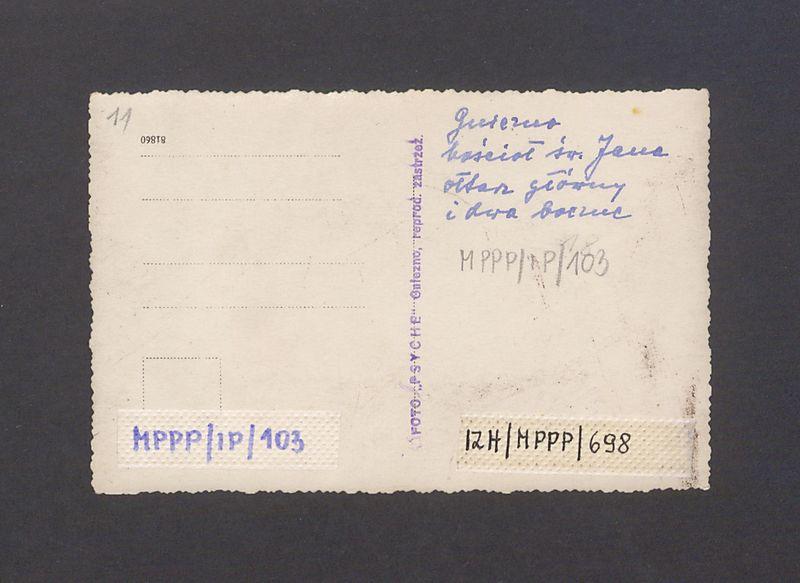 11
81860
FOTO „PSYCHE" Gniezno, reprod. zastrzeż.
Gniezno
kościoł św. Jana
ołtarz główny
i dwa boczne
MPPP/IP/103
MPPP/IP/103
IZH/MPPP/698